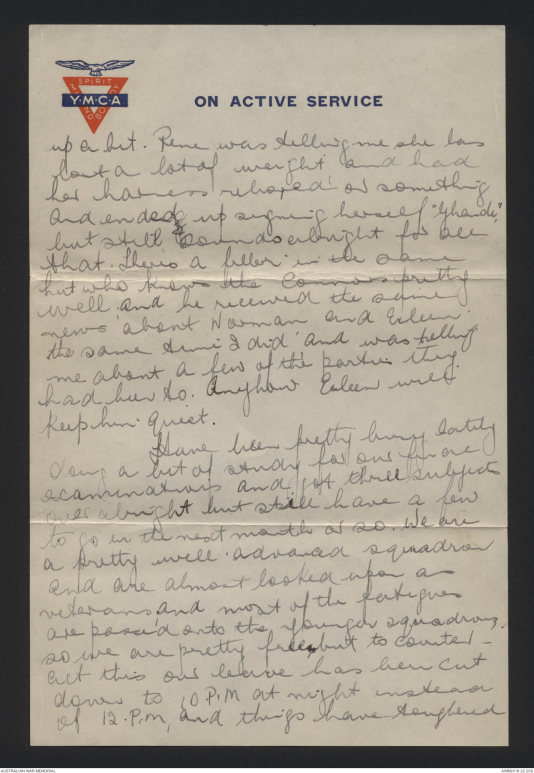 SPIRIT
Y·M·C·A
MIND BODY
ON ACTIVE SERVICE
up a bit. Rene was telling me she has
lost a lot of weight and had
her harness reshaped or something
and ended up signing herself "Ghandi",
but still, sounds alright for all
that. Theres a feller in the same
hut who knows the Connors pretty
well and he received the same
news about Norman and Eileen
the same time I did and was telling
me about a few of the parties they
had been to. Anyhow Eileen will
keep him quiet.
Have been pretty busy lately
doing a bit of study for our
examinations and got three subjects
over alright but still have a few
to go in the next month or so. We are
a pretty well advanced squadron
and are almost looked upon as
veterans and most of the fatigues
are passed onto the younger squadrons,
so we are pretty free, but to counter-
act this our leave has been cut
down to 10 P.M at night instead
of 12.P.M, and things have toughened
AUSTRALIAN WAR MEMORIAL